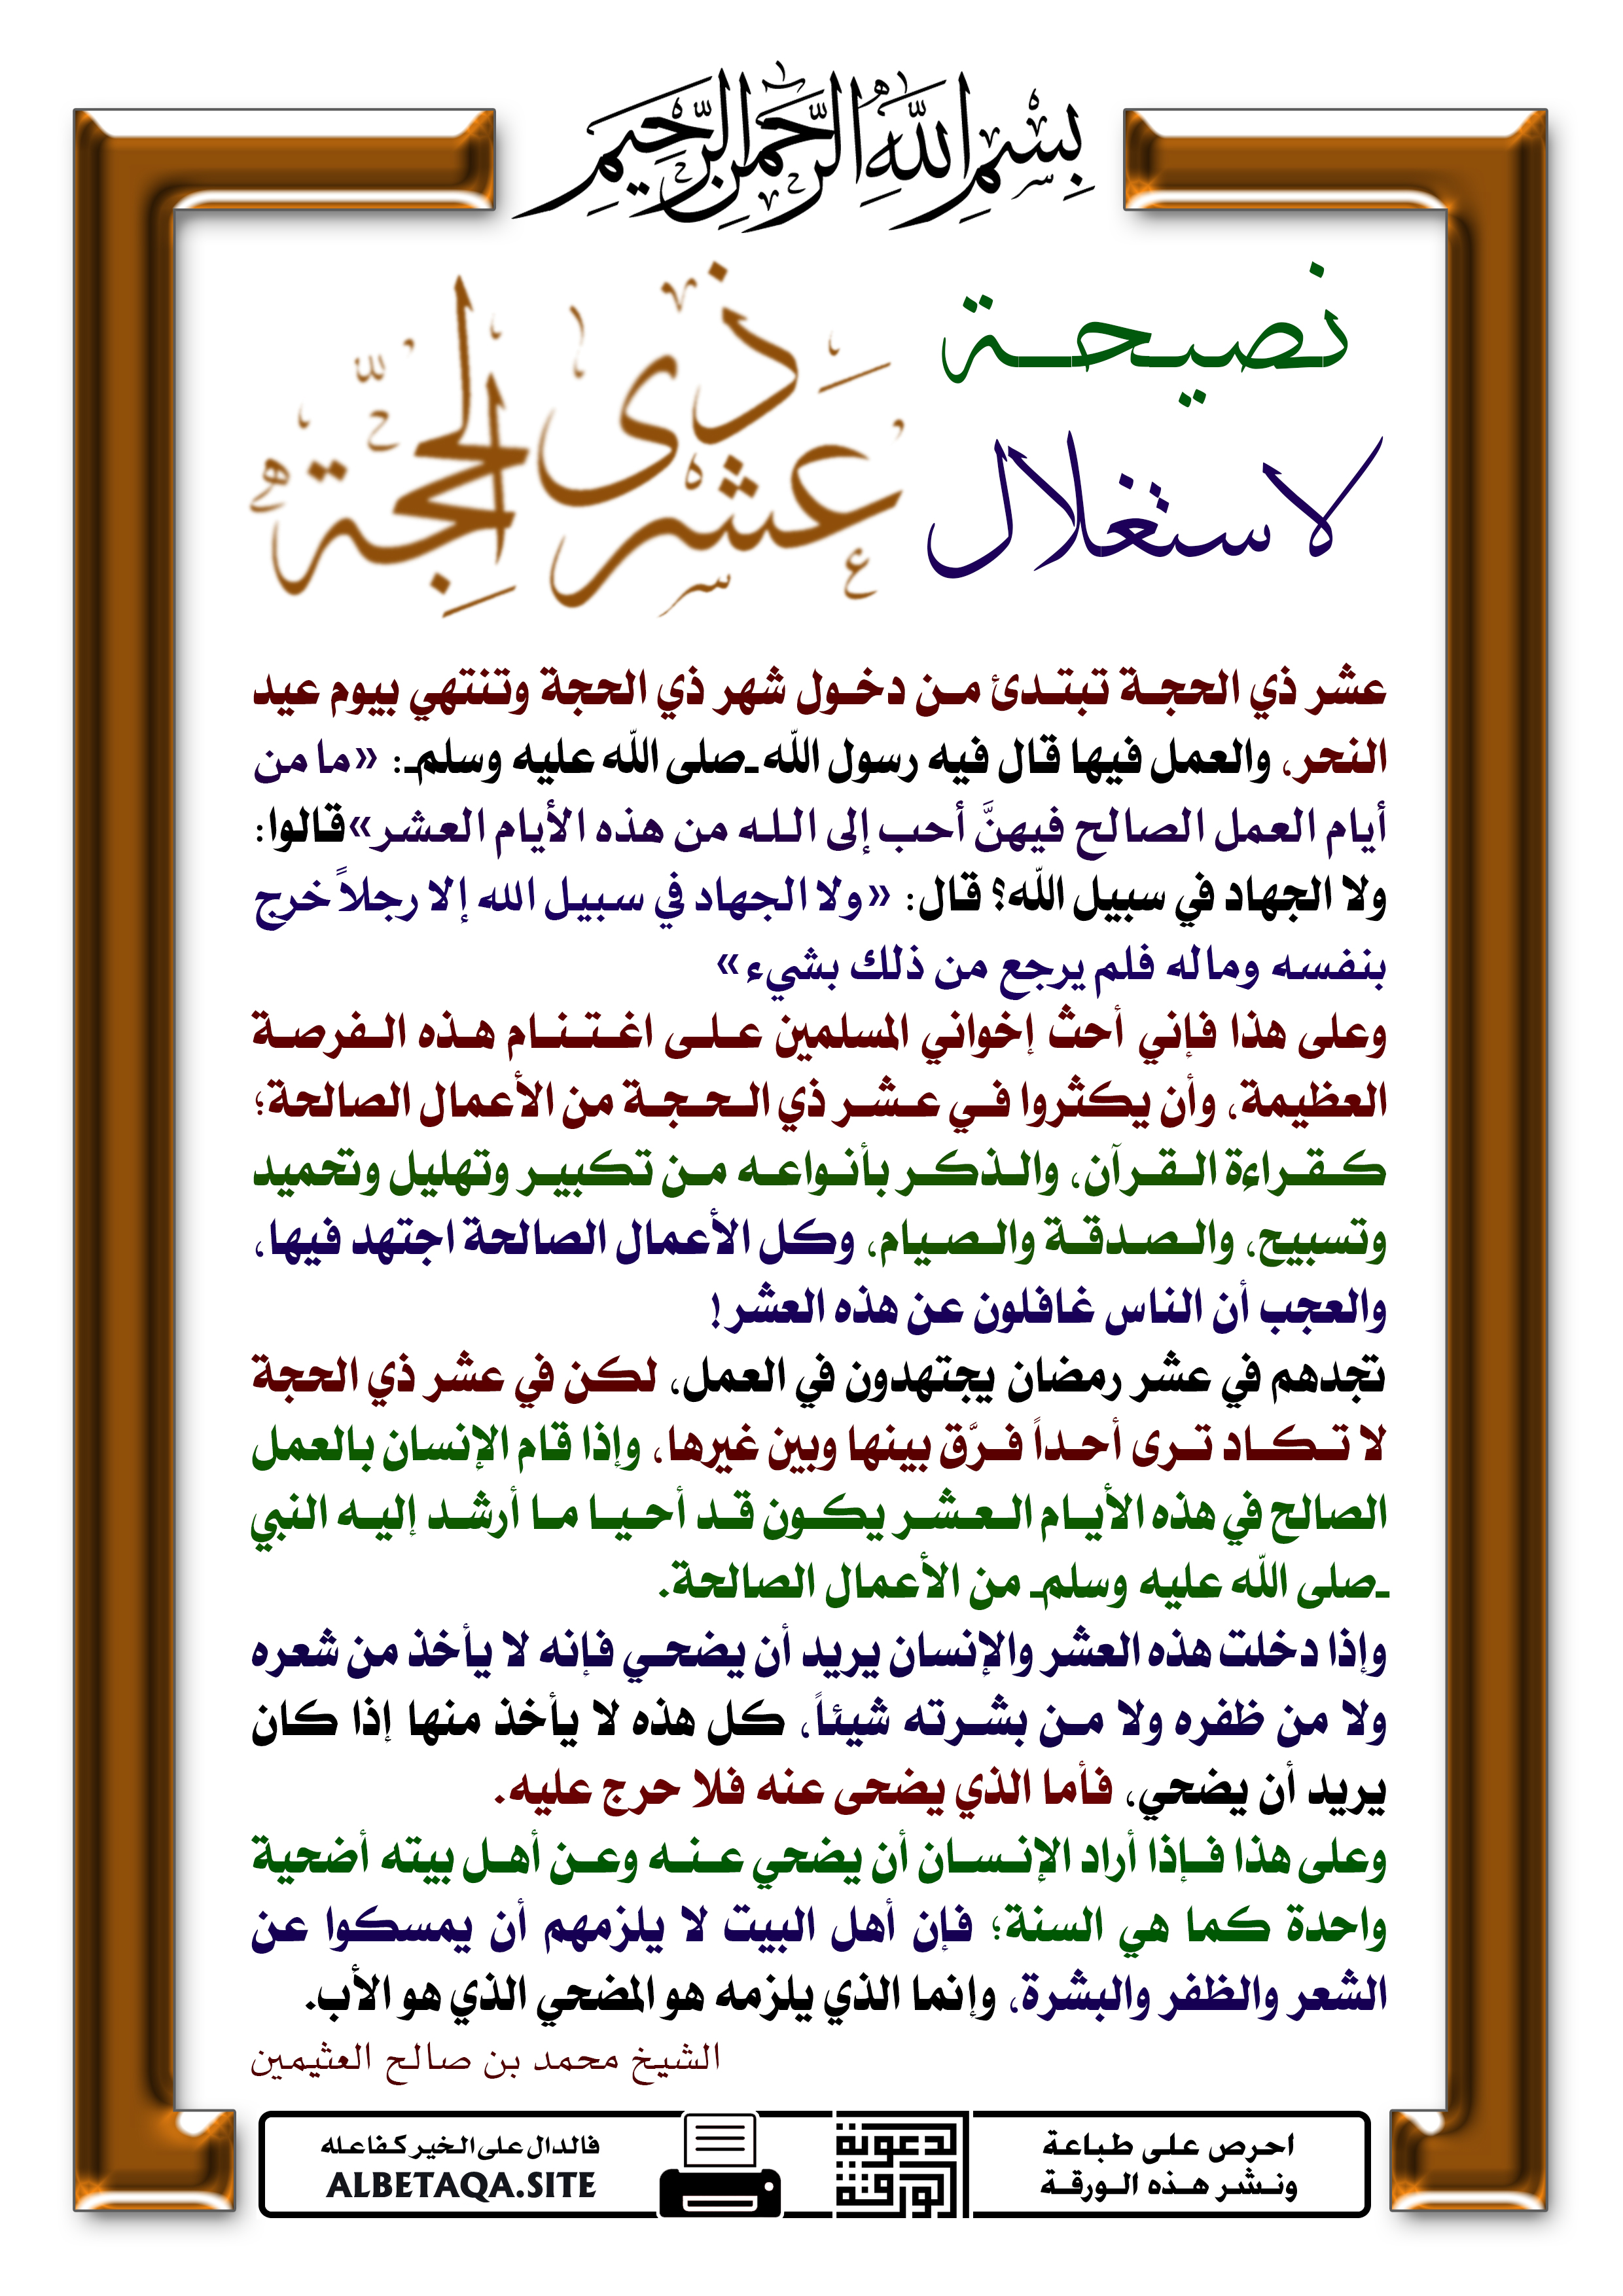 بِسْمِ اللَّهِ الرَّحْمَٰنِ الرَّحِيمِ
نصيحة
لاستغلال
عَشْرِ ذِي الحِجَّةِ
عشر ذي الحجة تبتدئ من دخول شهر ذي الحجة وتنتهي بيوم عيد
النحر، والعمل فيها قال فيه رسول الله ـصلى الله عليه وسلمـ: «ما من
أيام العمل الصالح فيهنَّ أحب إلى الله من هذه الأيام العشر»قالوا:
ولا الجهاد في سبيل الله؟ قال: «ولا الجهاد في سبيل الله إلا رجلاً خرج
بنفسه وماله فلم يرجع من ذلك بشيء»
وعلى هذا فإني أحث إخواني المسلمين على اغتنام هذه الفرصة
العظيمة، وأن يكثروا في عشر ذي الحجة من الأعمال الصالحة؛
كقراءة القرآن، والذكر بأنواعه من تكبير وتهليل وتحميد
وتسبيح، والصدقة والصيام، وكل الأعمال الصالحة اجتهد فيها،
والعجب أن الناس غافلون عن هذه العشر!
تجدهم في عشر رمضان يجتهدون في العمل، لكن في عشر ذي الحجة
لا تكاد ترى أحداً فرَّق بينها وبين غيرها، وإذا قام الإنسان بالعمل
الصالح في هذه الأيام العشر يكون قد أحيا ما أرشد إليه النبي
ـصلى الله عليه وسلمـ من الأعمال الصالحة.
وإذا دخلت هذه العشر والإنسان يريد أن يضحي فإنه لا يأخذ من شعره
ولا من ظفره ولا من بشرته شيئاً، كل هذه لا يأخذ منها إذا كان
يريد أن يضحي، فأما الذي يضحى عنه فلا حرج عليه.
وعلى هذا فإذا أراد الإنسان أن يضحي عنه وعن أهل بيته أضحية
واحدة كما هي السنة؛ فإن أهل البيت لا يلزمهم أن يمسكوا عن
الشعر والظفر والبشرة، وإنما الذي يلزمه هو المضحي الذي هو الأب.
الشيخ محمد بن صالح العثيمين
احرص على طباعة
ونشر هذه الورقة
الورقة
الدعوية
فالدال على الخير كفاعله
ALBETAQA.SITE